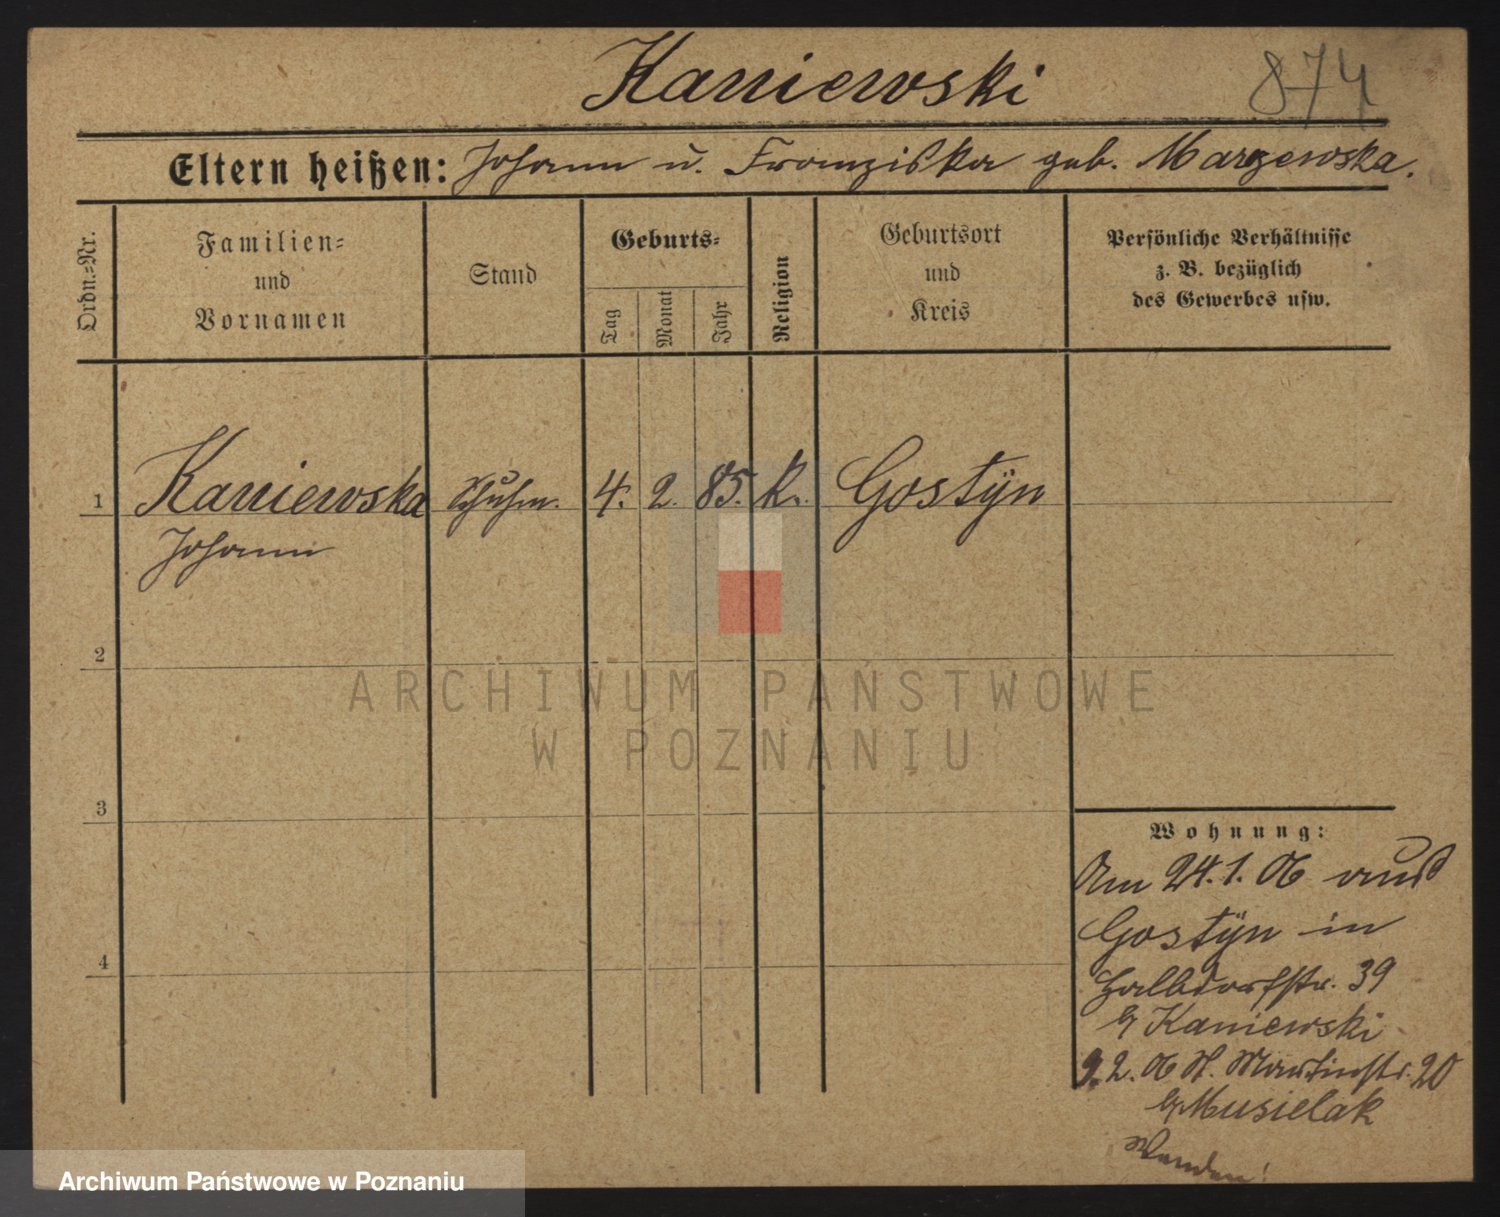 Kaniewski
874
Eltern heißen: Johann u. Franziska geb. Marzewska.
Ordn.=Nr.
Familien=
und
Vornamen
Stand
Geburts=
Tag
Monat
Jahr
Religion
Geburtsort
und
Kreis
Persönliche Verhältnisse
z. B. bezüglich
des Gewerbes usw.
1 Kaniewska Schuhm. 4. 2. 85. k. Gostÿn
Johann
2
3
4
Wohnung:
Am 24.1.06 aus
Gostÿn in
Halbdorfstr. 39
b/ Kaniewski
9.2.06 St. Martinstr. 20
b/ Musielak
Wenden!
ARCHIWUM PAŃSTWOWE
W POZNANIU
Archiwum Państwowe w Poznaniu